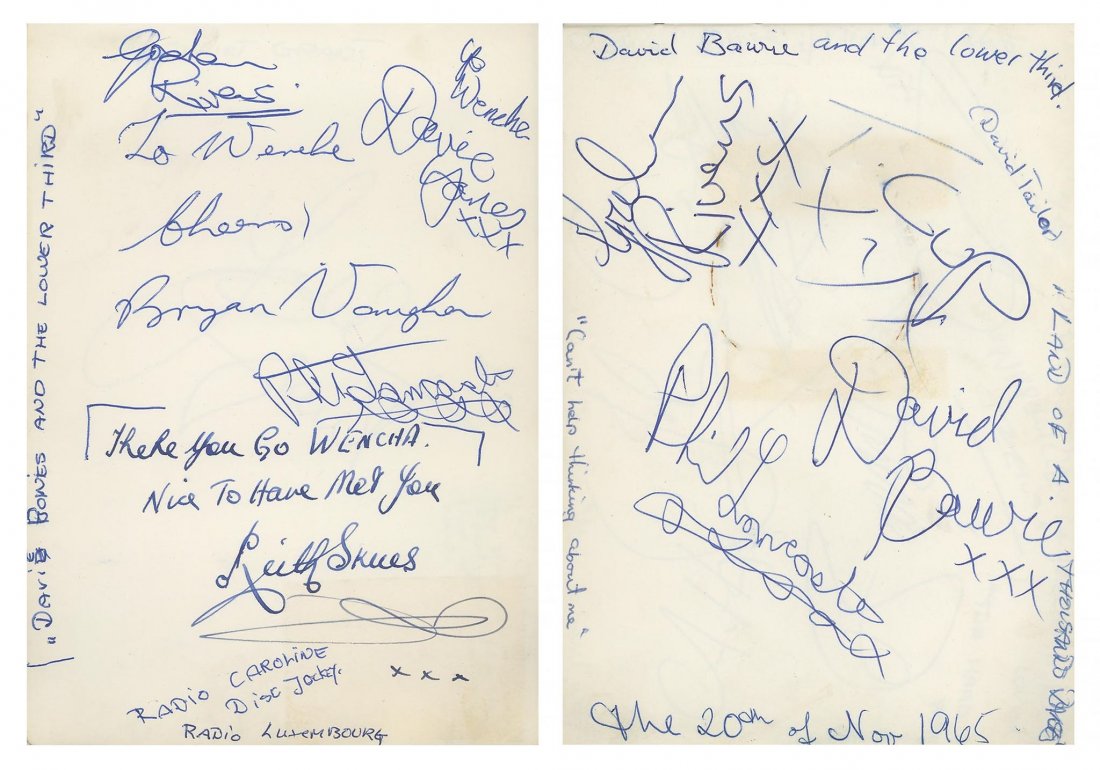 Graham
Rivens
To Wencha
Cheers!
Bryan Vaughan
Phil Lancaster
There you Go WENCHA.
Nice To Have Met You
Keith Skues
RADiO CAROLINE
Disc Jockey.
x x x
RADiO LUXEMBOURG
to
Wencha
Davie
Jones
XXX
"DAViE BONES AND THE LOWER THiRD"
David Bawie and the lower third.
Graham
Rivens
XXX
XXX
(David Tailer)
Phil
Lancaster
David
Bowie
XXX
"Can't help thinking about me"
"LAND OF A THOUSAND DANCES
the 20th of Nov 1965